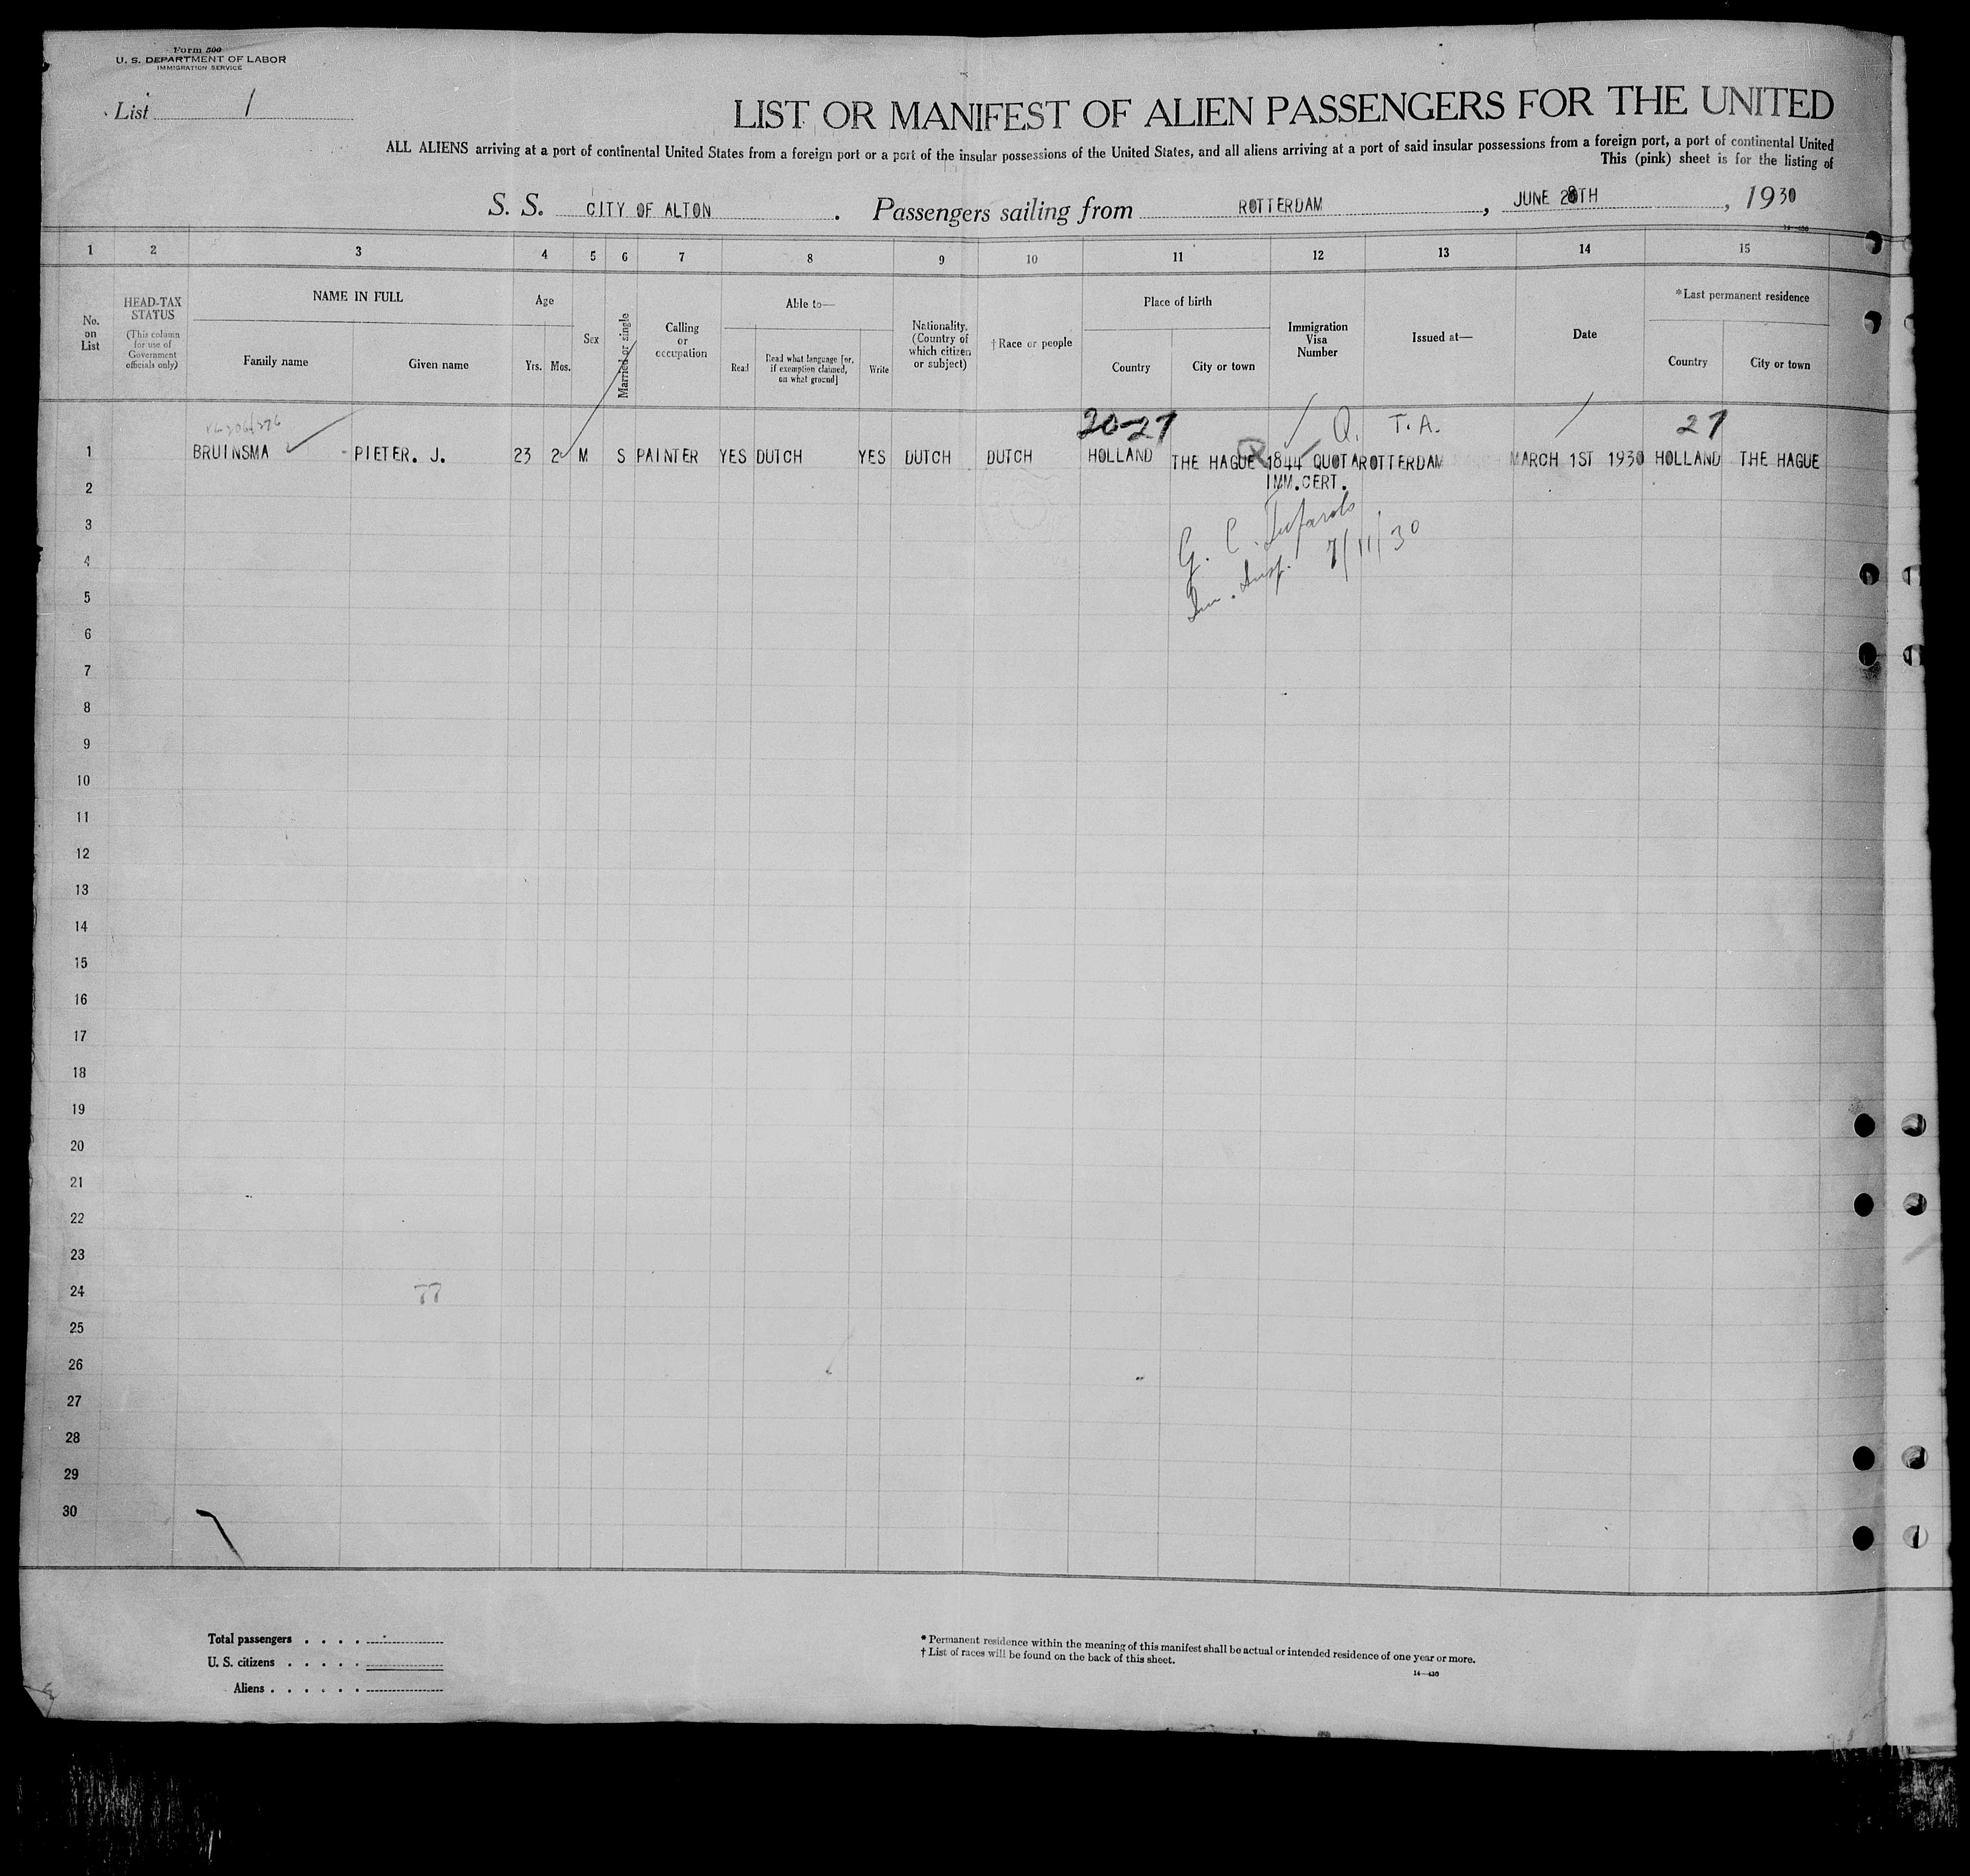 Form 500
U. S. DEPARTMENT OF LABOR
IMMIGRATION SERVICE
List 1
LIST OR MANIFEST OF ALIEN PASSENGERS FOR THE UNITED
ALL ALIENS arriving at a port of continental United States from a foreign port or a port of the insular possessions of the United States, and all aliens arriving at a port of said insular possessions from a foreign port, a port of continental United
This (pink) sheet is for the listing of
S. S. CITY OF ALTON . Passengers sailing from ROTTERDAM , JUNE 28TH , 1930
1 2 3 4 5 6 7 8 9 10 11 12 13 14 15
No. on List
HEAD-TAX STATUS
(This column for use of Government officials only)
NAME IN FULL
Family name Given name
Age
Yrs. Mos.
Sex
Married or single
Calling or occupation
Able to—
Read
Read what language [or, if exemption claimed, on what ground]
Write
Nationality. (Country of which citizen or subject)
†Race or people
Place of birth
Country City or town
Immigration Visa Number
Issued at—
Date
*Last permanent residence
Country City or town
20-27 Q. T.A. 27
1 BRUINSMA PIETER. J. 23 2 M S PAINTER YES DUTCH YES DUTCH DUTCH HOLLAND THE HAGUE 1844 QUOTA ROTTERDAM MARCH 1ST 1930 HOLLAND THE HAGUE
2 IMM.CERT.
3 G. C.
4 7/11/30
5 Im. Insp.
6
7
8
9
10
11
12
13
14
15
16
17
18
19
20
21
22
23
24 77
25
26
27
28
29
30
Total passengers . . . .
U. S. citizens . . . . .
Aliens . . . . . .
* Permanent residence within the meaning of this manifest shall be actual or intended residence of one year or more.
† List of races will be found on the back of this sheet.
14—430